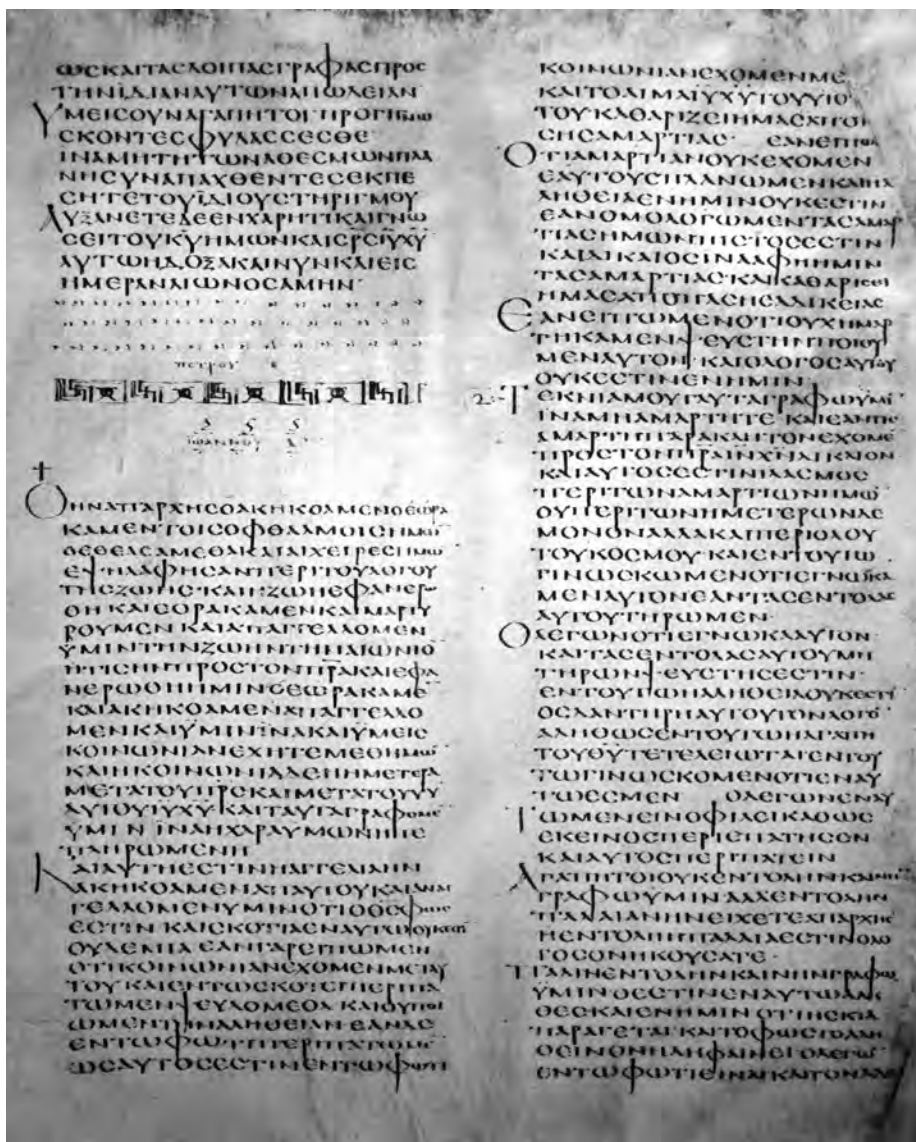 ΩϹΚΑΙΤΑϹΛΟΙΠΑϹΓΡΑΦΑϹΠΡΟϹ
ΤΗΝΪΔΙΑΝΑΥΤΩΝΑΠΩΛΕΙΑΝ
ΥΜΕΙϹΟΥΝΑΓΑΠΗΤΟΙΠΡΟΓΙΝΩ
ϹΚΟΝΤΕϹΦΥΛΑϹϹΕϹΘΕ
ΙΝΑΜΗΤΗΤΩΝΑΘΕϹΜΩΝΠΛΑ
ΝΗϹΥΝΑΠΑΧΘΕΝΤΕϹΕΚΠΕ
ϹΗΤΕΤΟΥΪΔΙΟΥϹΤΗΡΙΓΜΟΥ
ΑΥΞΑΝΕΤΕΔΕΕΝΧΑΡΗΤΙΚΑΙΓΝΩ
ϹΕΙΤΟΥΚΥΗΜΩΝΚΑΙϹΡϹΙΥΧΥ
ΑΥΤΩΗΔΟΞΑΚΑΙΝΥΝΚΑΙΕΙϹ
ΗΜΕΡΑΝΑΙΩΝΟϹΑΜΗΝ·
ΠΕΤΡΟΥ Β
ΙΩΑΝΝΟΥ Α
ΟΗΝΑΠΑΡΧΗϹΟΑΚΗΚΟΑΜΕΝΟΕΩΡΑ
ΚΑΜΕΝΤΟΙϹΟΦΘΑΛΜΟΙϹΗΜΩ
ΟΕΘΕΑϹΑΜΕΘΑΚΑΙΑΙΧΕΙΡΕϹΗΜΩ
ΕΨΗΛΑΦΗϹΑΝΠΕΡΙΤΟΥΛΟΓΟΥ
ΤΗϹΖΩΗϹ ΚΑΙΗΖΩΗΕΦΑΝΕΡΩ
ΘΗ ΚΑΙΕΟΡΑΚΑΜΕΝΚΑΙΜΑΡΤΥ
ΡΟΥΜΕΝ ΚΑΙΑΠΑΓΓΕΛΛΟΜΕΝ
ΥΜΙΝΤΗΝΖΩΗΝΤΗΝΑΙΩΝΙΟ
ΗΤΙϹΗΝΠΡΟϹΤΟΝΠΡΑΚΑΙΕΦΑ
ΝΕΡΩΘΗΗΜΙΝΟΕΩΡΑΚΑΜΕ
ΚΑΙΑΚΗΚΟΑΜΕΝΑΠΑΓΓΕΛΛΟ
ΜΕΝΚΑΙΫΜΙΝΪΝΑΚΑΙΫΜΕΙϹ
ΚΟΙΝΩΝΙΑΝΕΧΗΤΕΜΕΘΗΜΩ
ΚΑΙΗΚΟΙΝΩΝΙΑΔΕΗΗΜΕΤΕΡΑ
ΜΕΤΑΤΟΥΠΡϹΚΑΙΜΕΤΑΤΟΥΥΥ
ΑΥΤΟΥΙΥΧΥ ΚΑΙΤΑΥΤΑΓΡΑΦΟΜΕ
ΫΜΙΝ ΪΝΑΗΧΑΡΑΥΜΩΝΗΠΕ
ΠΛΗΡΩΜΕΝΗ
ΚΑΙΑΥΤΗΕϹΤΙΝΗΑΓΓΕΛΙΑΗΝ
ΑΚΗΚΟΑΜΕΝΑΠΑΥΤΟΥΚΑΙΑΝΑΓ
ΓΕΛΛΟΜΕΝΥΜΙΝΟΤΙΟΘϹΦΩϹ
ΕϹΤΙΝ ΚΑΙϹΚΟΤΙΑΕΝΑΥΤΩΟΥΚΕϹΤΙ
ΟΥΔΕΜΙΑ ΕΑΝΓΑΡΕΙΠΩΜΕΝ
ΟΤΙΚΟΙΝΩΝΙΑΝΕΧΟΜΕΝΜΕΤΑΥ
ΤΟΥ ΚΑΙΕΝΤΩϹΚΟΤΕΙΠΕΡΙΠΑ
ΤΩΜΕΝΨΕΥΔΟΜΕΘΑ ΚΑΙΟΥΠΟΙ
ΩΜΕΝΤΗΝΑΛΗΘΕΙΑΝ ΕΑΝΔΕ
ΕΝΤΩΦΩΤΙΠΕΡΙΠΑΤΩΜΕ
ΩϹΑΥΤΟϹΕϹΤΙΝΕΝΤΩΦΩΤΙ
ΚΟΙΝΩΝΙΑΝΕΧΟΜΕΝΜΕ
ΚΑΙΤΟΑΙΜΑΙΥΧΥΤΟΥΥΙΟ
ΤΟΥΚΑΘΑΡΙΖΕΙΗΜΑϹΑΠΟΠΑ
ϹΗϹΑΜΑΡΤΙΑϹ· ΕΑΝΕΙΠΩΜ
ΟΤΙΑΜΑΡΤΙΑΝΟΥΚΕΧΟΜΕΝ
ΕΑΥΤΟΥϹΠΛΑΝΩΜΕΝΚΑΙΗΑ
ΛΗΘΕΙΑΕΝΗΜΙΝΟΥΚΕϹΤΙΝ
ΕΑΝΟΜΟΛΟΓΩΜΕΝΤΑϹΑΜΑΡ
ΤΙΑϹΗΜΩΝΠΙϹΤΟϹΕϹΤΙΝ
ΚΑΙΔΙΚΑΙΟϹΙΝΑΑΦΗΗΜΙΝ
ΤΑϹΑΜΑΡΤΙΑϹ ΚΑΙΚΑΘΑΡΙϹΕΙ
ΗΜΑϹΑΠΟΠΑϹΗϹΑΔΙΚΕΙΑϹ
ΕΑΝΕΙΠΩΜΕΝΟΤΙΟΥΧΗΜΑΡ
ΤΗΚΑΜΕΝΨΕΥϹΤΗΝΠΟΙΟΥ
ΜΕΝΑΥΤΟΝ ΚΑΙΟΛΟΓΟϹΑΥΤΟΥ
ΟΥΚΕϹΤΙΝΕΝΗΜΙΝ·
2 ΤΕΚΝΙΑΜΟΥΤΑΥΤΑΓΡΑΦΩΫΜΙ
ΪΝΑΜΗΑΜΑΡΤΗΤΕ ΚΑΙΕΑΝΤΙϹ
ΑΜΑΡΤΗΠΑΡΑΚΛΗΤΟΝΕΧΟΜΕ
ΠΡΟϹΤΟΝΠΡΑΙΝΧΝΔΙΚΑΙΟΝ
ΚΑΙΑΥΤΟϹΕϹΤΙΝΙΛΑϹΜΟϹ
ΠΕΡΙΤΩΝΑΜΑΡΤΙΩΝΗΜΩ
ΟΥΠΕΡΙΤΩΝΗΜΕΤΕΡΩΝΔΕ
ΜΟΝΟΝΑΛΛΑΚΑΙΠΕΡΙΟΛΟΥ
ΤΟΥΚΟϹΜΟΥ·ΚΑΙΕΝΤΟΥΤΩ
ΓΙΝΩϹΚΩΜΕΝΟΤΙΕΓΝΩΚΑ
ΜΕΝΑΥΤΟΝΕΑΝΤΑϹΕΝΤΟΛΑϹ
ΑΥΤΟΥΤΗΡΩΜΕΝ·
ΟΛΕΓΩΝΟΤΙΕΓΝΩΚΑΑΥΤΟΝ
ΚΑΙΤΑϹΕΝΤΟΛΑϹΑΥΤΟΥΜΗ
ΤΗΡΩΝΨΕΥϹΤΗϹΕϹΤΙΝ·
ΕΝΤΟΥΤΩΗΑΛΗΘΕΙΑΟΥΚΕϹΤΙ
ΟϹΔΑΝΤΗΡΗΑΥΤΟΥΤΟΝΛΟΓΟ
ΑΛΗΘΩϹΕΝΤΟΥΤΩΗΑΓΑΠΗ
ΤΟΥΘΥΤΕΤΕΛΕΙΩΤΑΙΕΝΤΟΥ
ΤΩΓΙΝΩϹΚΟΜΕΝΟΤΙΕΝΑΥ
ΤΩΕϹΜΕΝ ΟΛΕΓΩΝΕΝΑΥ
ΤΩΜΕΝΕΙΝΟΦΙΛΕΙΚΑΘΩϹ
ΕΚΕΙΝΟϹΠΕΡΙΕΠΑΤΗϹΕΝ
ΚΑΙΑΥΤΟϹΠΕΡΙΠΑΤΕΙΝ
ΑΓΑΠΗΤΟΙΟΥΚΕΝΤΟΛΗΝΚΑΙΝΗ
ΓΡΑΦΩΫΜΙΝ ΑΛΛΕΝΤΟΛΗΝ
ΠΑΛΑΙΑΝΗΝΕΙΧΕΤΕΑΠΑΡΧΗϹ
ΗΕΝΤΟΛΗΗΠΑΛΑΙΑΕϹΤΙΝΟΛΟ
ΓΟϹΟΝΗΚΟΥϹΑΤΕ·
ΠΑΛΙΝΕΝΤΟΛΗΝΚΑΙΝΗΝΓΡΑΦΩ
ΫΜΙΝΟΕϹΤΙΝΕΝΑΥΤΩΑΛΗ
ΘΕϹΚΑΙΕΝΗΜΙΝ ΟΤΙΗϹΚΙΑ
ΠΑΡΑΓΕΤΑΙ ΚΑΙΤΟΦΩϹΤΟΑΛΗ
ΘΕΙΝΟΝΗΔΗΦΑΙΝΕΙΟΛΕΓΩ
ΕΝΤΩΦΩΤΙΕΙΝΑΙΚΑΙΤΟΝΑΔΕΛ